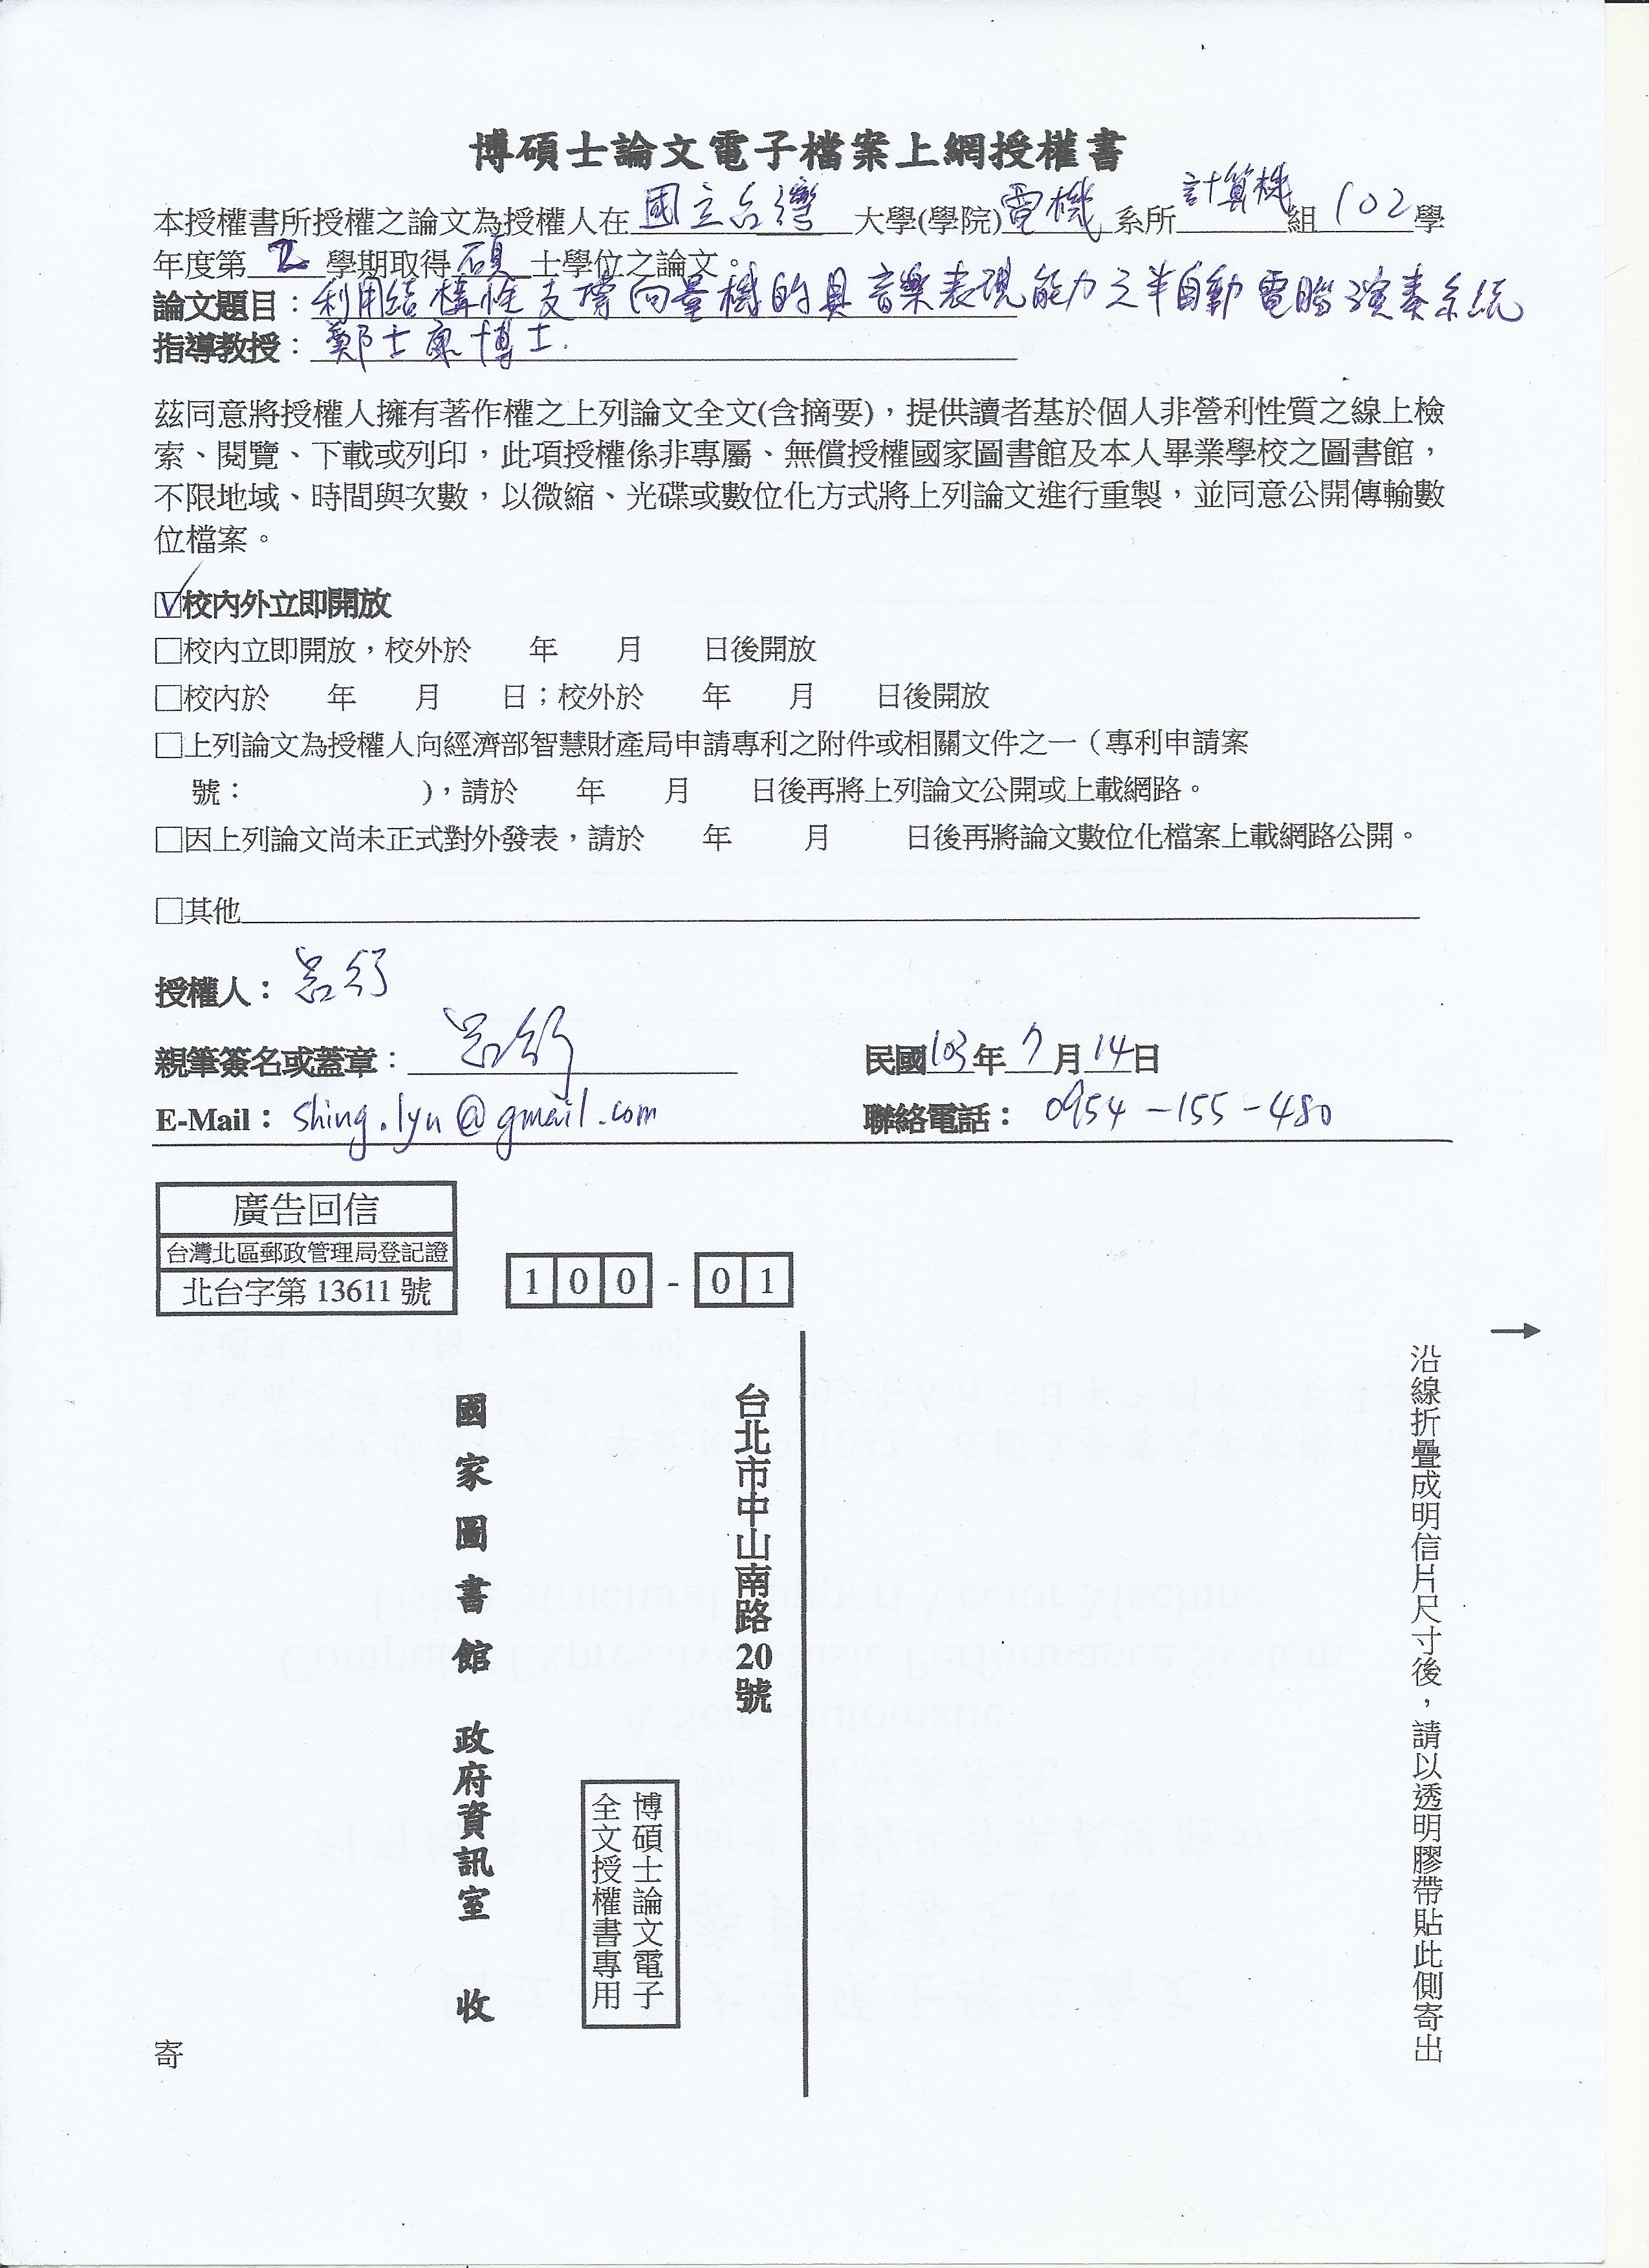 博碩士論文電子檔案上網授權書
本授權書所授權之論文為授權人在 國立台灣 大學(學院) 電機 系所 計算機 組 102 學
年度第 2 學期取得 碩 士學位之論文。
論文題目：利用結構性支撐向量機的具音樂表現能力之半自動電腦演奏系統
指導教授：鄭士康博士.
茲同意將授權人擁有著作權之上列論文全文(含摘要)，提供讀者基於個人非營利性質之線上檢
索、閱覽、下載或列印，此項授權係非專屬、無償授權國家圖書館及本人畢業學校之圖書館，
不限地域、時間與次數，以微縮、光碟或數位化方式將上列論文進行重製，並同意公開傳輸數
位檔案。
☑校內外立即開放
□校內立即開放，校外於 年 月 日後開放
□校內於 年 月 日；校外於 年 月 日後開放
□上列論文為授權人向經濟部智慧財產局申請專利之附件或相關文件之一（專利申請案
號： )，請於 年 月 日後再將上列論文公開或上載網路。
□因上列論文尚未正式對外發表，請於 年 月 日後再將論文數位化檔案上載網路公開。
□其他
授權人：呂行
親筆簽名或蓋章：呂行 民國103年7月14日
E-Mail：shing.lyu@gmail.com 聯絡電話：0954-155-480
廣告回信
台灣北區郵政管理局登記證
北台字第 13611 號
100-01
沿線折疊成明信片尺寸後，請以透明膠帶貼此側寄出
→
台北市中山南路20號
博碩士論文電子
全文授權書專用
國家圖書館 政府資訊室 收
寄